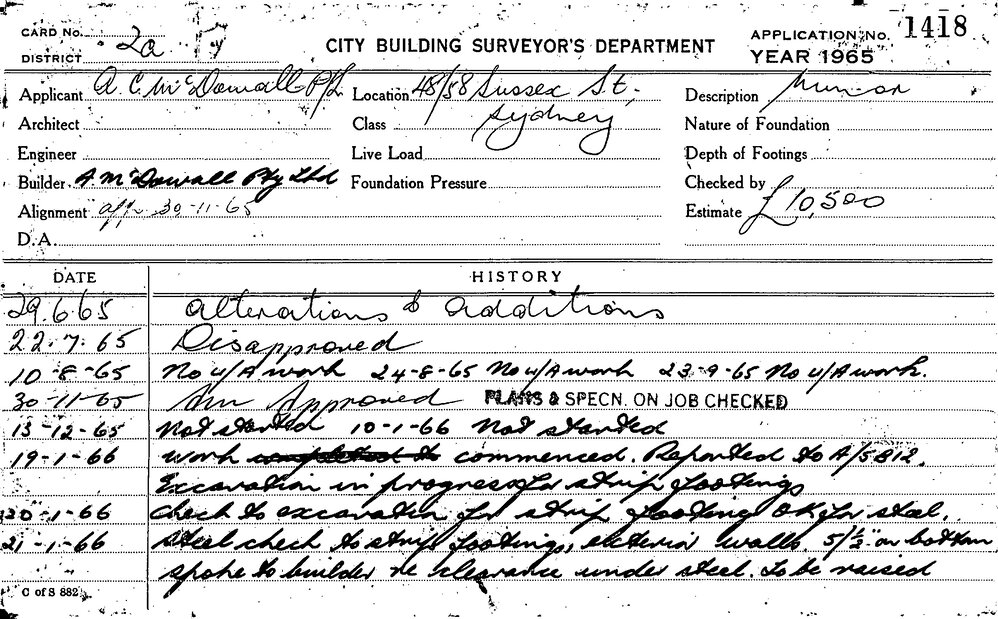 CARD No. 2a
DISTRICT
CITY BUILDING SURVEYOR'S DEPARTMENT
APPLICATION No. 1418
YEAR 1965
Applicant A. C. McDowall P/L Location 48/58 Sussex St., Description Minor
Architect Class Sydney Nature of Foundation
Engineer Live Load Depth of Footings
Builder A. McDowall Pty Ltd Foundation Pressure Checked by
Alignment app. 30-11-65 Estimate £10,500
D.A.
DATE HISTORY
29.6.65 Alterations & additions
22.7.65 Disapproved
10-8-65 No u/A work 24-8-65 No u/A work 23-9-65 No u/A work.
30-11-65 Approved PLANS & SPECN. ON JOB CHECKED
13-12-65 Not started 10-1-66 Not started
19-1-66 Work completed to commenced. Reported to A/S 812.
Excavation in progress for strip footings
20-1-66 Check to excavation for strip footing OK for steel.
21-1-66 Steel check to strip footings, exterior walls. 5/½" on bottom
spoke to builder re clearance under steel. To be raised
C of S 882